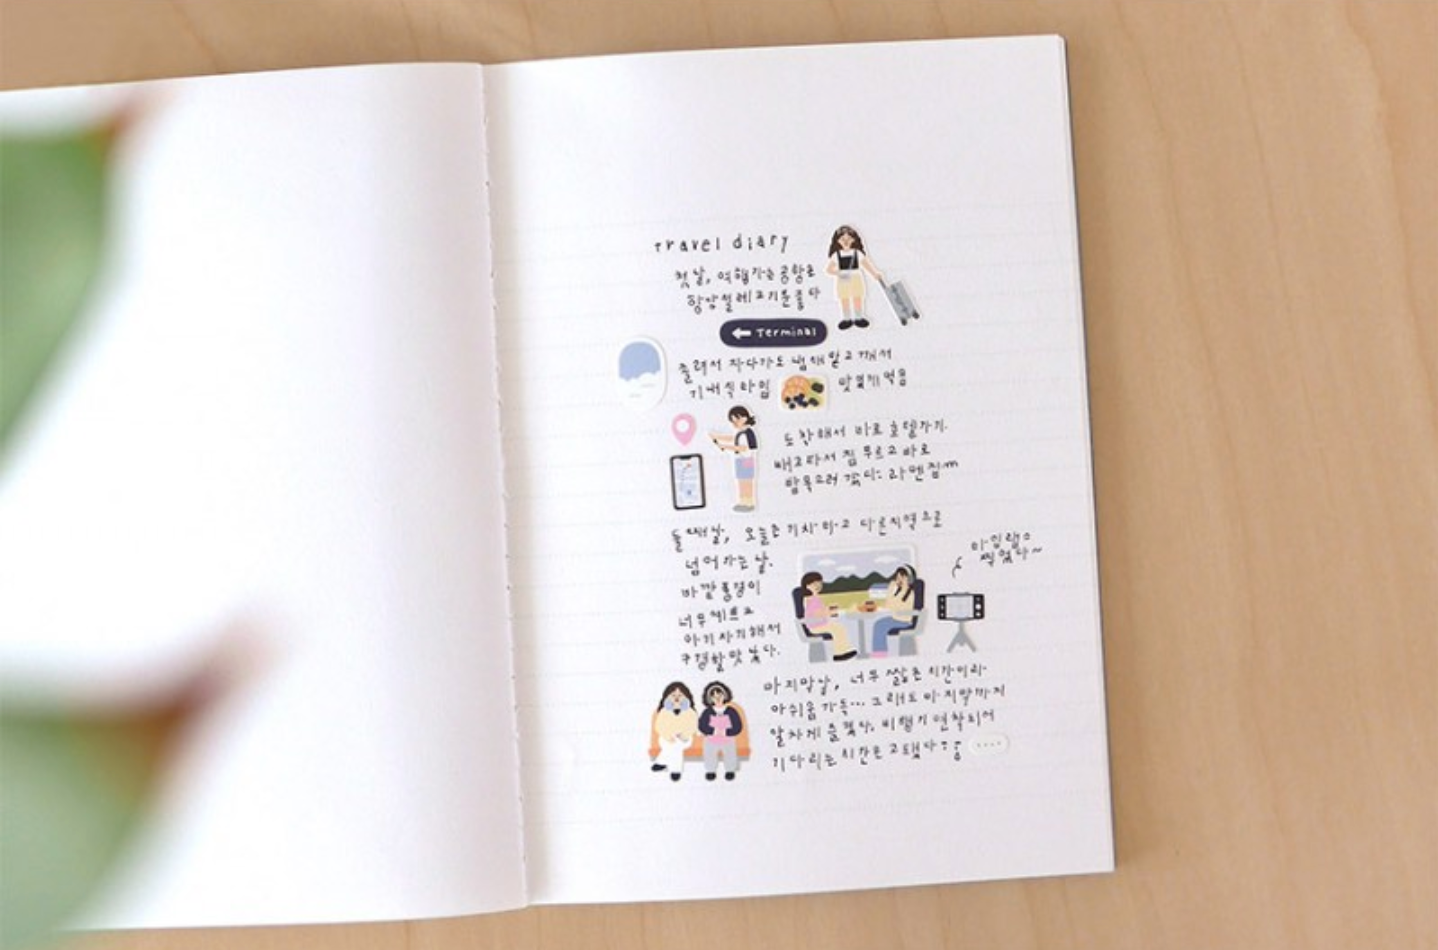 travel diary
첫날, 여행가는 공항은
항상 설레고 기분 좋다
← Terminal
졸려서 자다가도 냄새 맡고 깨서
기내식 타임 맛있게 먹음
도착해서 바로 호텔가기.
배고파서 짐 두르고 바로
밥 먹으러 갔다: 라멘집m
둘째날, 오늘은 기차타고 다른지역으로
넘어가는 날.
바깥 풍경이
너무 예쁘고
아기자기해서
구경할 맛 났다.
타임랩스
찍었다~
마지막날, 너무 짧은 시간이라
아쉬움 가득... 그래도 마지막까지
알차게 놀았다. 비행기 연착되어
기다리는 시간은 고됐다
....